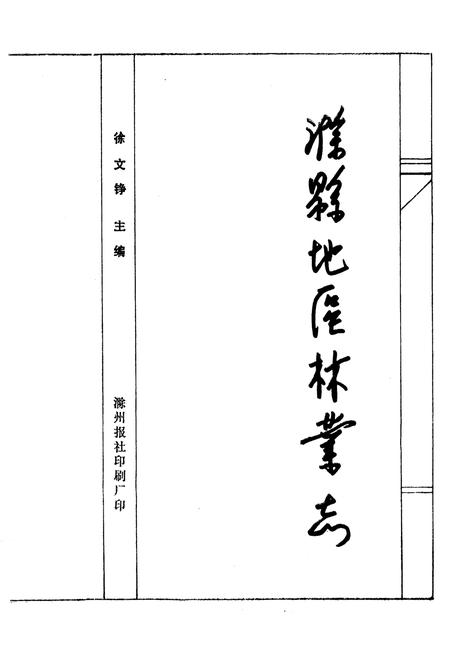 滁縣地區林業志
徐文铮 主编
滁州报社印刷厂印